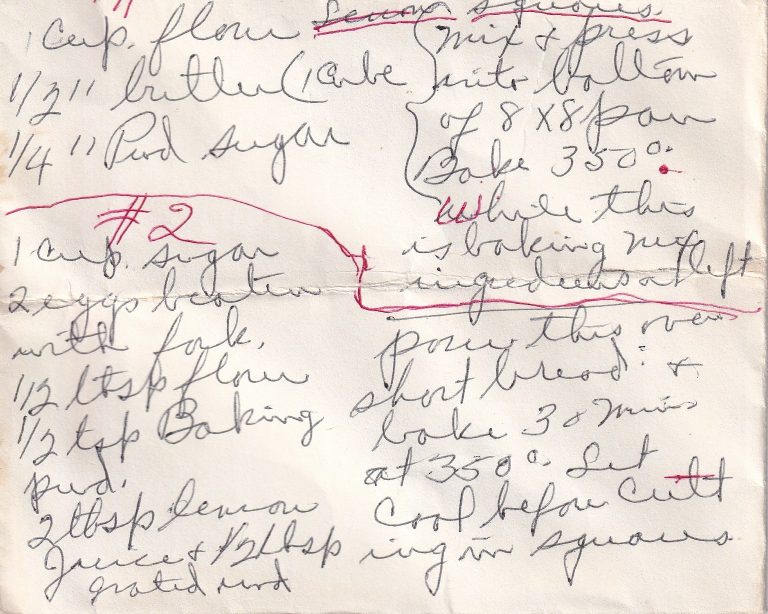 Lemon squares.
1 cup. flour
1/2 " butter (1 cube
1/4 " Pwd sugar
mix & press
into bottom
of 8 x 8 pan
Bake 350°.
While this
is baking mix
ingrediens at left
#2
1 cup. sugar
2 eggs beaten
with fork.
1/2 tbsp flour
1/2 tsp Baking
pwd.
2 tbsp lemon
Juice & 1/2 tbsp
grated rind
pour this over
short bread &
bake 30 mins
at 350°. Let
cool before cutt
ing in squares